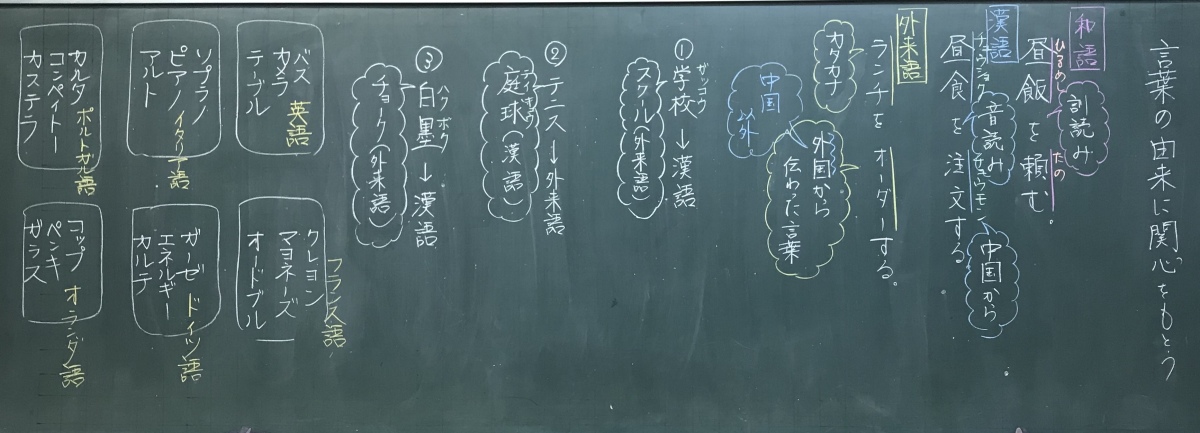 言葉の由来に関心をもとう
和語
訓読み
ひるめし たの
昼飯を頼む。
漢語
音読み
チュウショク チュウモン
昼食を注文する
中国から
外来語
ランチをオーダーする。
カタカナ
外国から
伝わった言葉
中国
以外
ガッコウ
①学校→漢語
スクール(外来語)
②テニス→外来語
テイキュウ
庭球(漢語)
ハクボク
③白墨→漢語
チョーク(外来語)
バス
カメラ
テーブル
英語
フランス語
クレヨン
マヨネーズ
オードブル
ソプラノ
ピアノ
アルト
イタリア語
ガーゼ
エネルギー
カルテ
ドイツ語
カルタ
コンペイトー
カステラ
ポルトガル語
コップ
ペンキ
ガラス
オランダ語